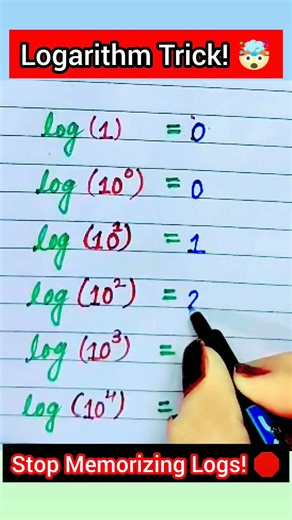 Logarithm Trick! 🤯
log (1) = 0
log (10⁰) = 0
log (10¹) = 1
log (10²) = 2
log (10³) =
log (10⁴) =
Stop Memorizing Logs! 🛑